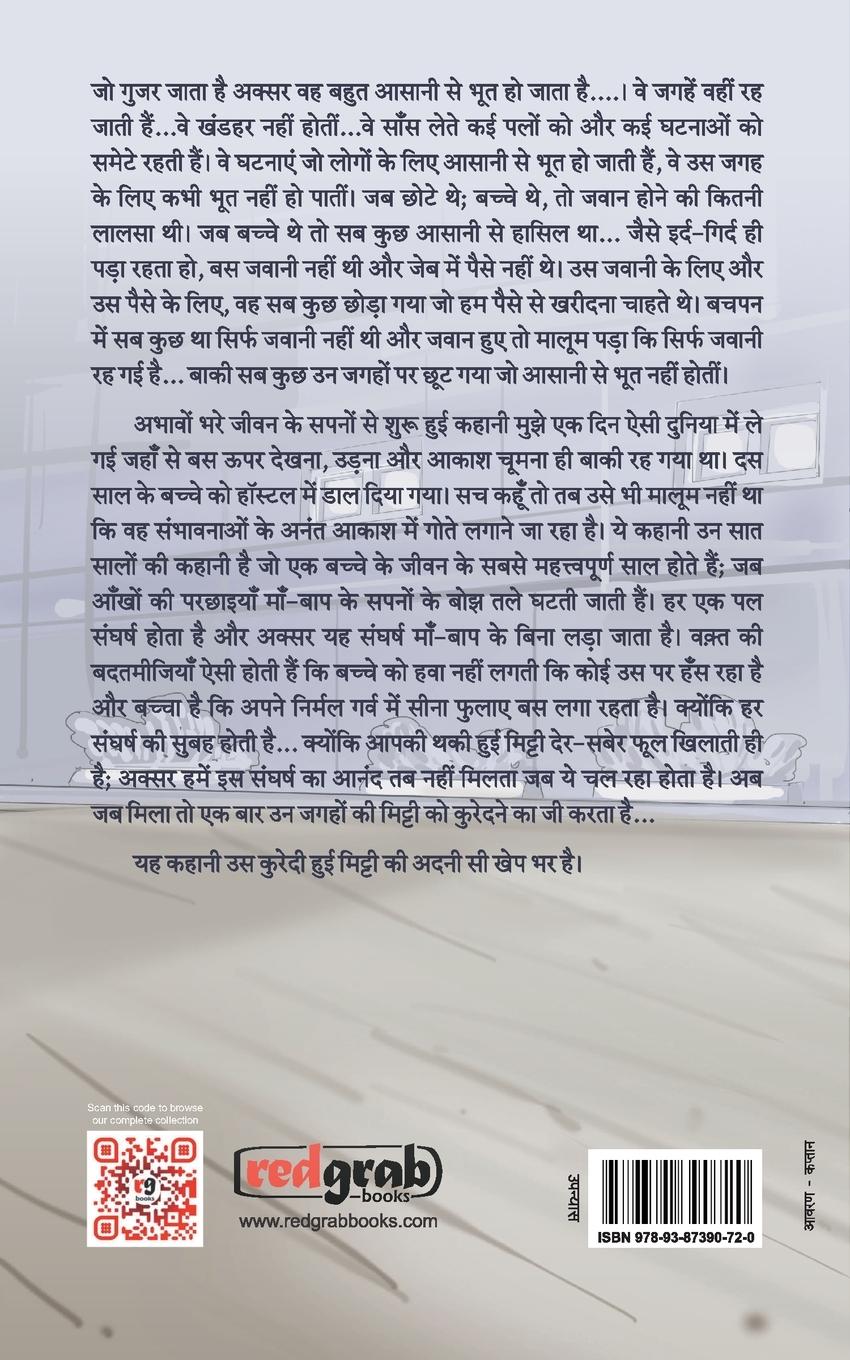 जो गुजर जाता है अक्सर वह बहुत आसानी से भूत हो जाता है....। वे जगहें वहीं रह
जाती हैं...वे खंडहर नहीं होतीं...वे साँस लेते कई पलों को और कई घटनाओं को
समेटे रहती हैं। वे घटनाएं जो लोगों के लिए आसानी से भूत हो जाती हैं, वे उस जगह
के लिए कभी भूत नहीं हो पातीं। जब छोटे थे; बच्चे थे, तो जवान होने की कितनी
लालसा थी। जब बच्चे थे तो सब कुछ आसानी से हासिल था... जैसे इर्द-गिर्द ही
पड़ा रहता हो, बस जवानी नहीं थी और जेब में पैसे नहीं थे। उस जवानी के लिए और
उस पैसे के लिए, वह सब कुछ छोड़ा गया जो हम पैसे से खरीदना चाहते थे। बचपन
में सब कुछ था सिर्फ जवानी नहीं थी और जवान हुए तो मालूम पड़ा कि सिर्फ जवानी
रह गई है... बाकी सब कुछ उन जगहों पर छूट गया जो आसानी से भूत नहीं होतीं।
अभावों भरे जीवन के सपनों से शुरू हुई कहानी मुझे एक दिन ऐसी दुनिया में ले
गई जहाँ से बस ऊपर देखना, उड़ना और आकाश चूमना ही बाकी रह गया था। दस
साल के बच्चे को हॉस्टल में डाल दिया गया। सच कहूँ तो तब उसे भी मालूम नहीं था
कि वह संभावनाओं के अनंत आकाश में गोते लगाने जा रहा है। ये कहानी उन सात
सालों की कहानी है जो एक बच्चे के जीवन के सबसे महत्त्वपूर्ण साल होते हैं; जब
आँखों की परछाइयाँ माँ-बाप के सपनों के बोझ तले घटती जाती हैं। हर एक पल
संघर्ष होता है और अक्सर यह संघर्ष माँ-बाप के बिना लड़ा जाता है। वक़्त की
बदतमीजियाँ ऐसी होती हैं कि बच्चे को हवा नहीं लगती कि कोई उस पर हँस रहा है
और बच्चा है कि अपने निर्मल गर्व में सीना फुलाए बस लगा रहता है। क्योंकि हर
संघर्ष की सुबह होती है... क्योंकि आपकी थकी हुई मिट्टी देर-सबेर फूल खिलाती ही
है; अक्सर हमें इस संघर्ष का आनंद तब नहीं मिलता जब ये चल रहा होता है। अब
जब मिला तो एक बार उन जगहों की मिट्टी को कुरेदने का जी करता है...
यह कहानी उस कुरेदी हुई मिट्टी की अदनी सी खेप भर है।
Scan this code to browse
our complete collection
rg
books
redgrab
books
www.redgrabbooks.com
उपन्यास
ISBN 978-93-87390-72-0
आवरण - कप्तान